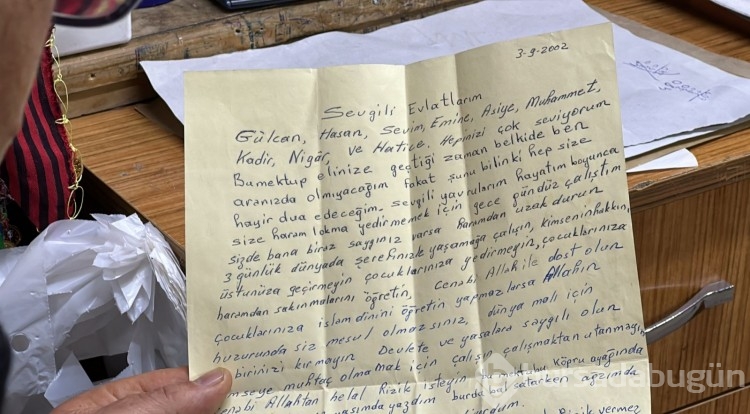 3-9-2002
Sevgili Evlatlarım
Gülcan, Hasan, Sevim, Emine, Asiye, Muhammet,
Kadir, Nigâr, ve Hatice. Hepinizi çok seviyorum
Bumektup elinize geçtiği zaman belkide ben
aranızda olmıyacağım fakat şunu bilinki hep size
hayir dua edeceğim. sevgili yavrularım hayatım boyunca
size haram lokma yedirmemek için gece gündüz çalıştım
sizde bana biraz saygınız varsa haramdan uzak durun
3 günlük dünyada şerefinizle yaşamağa çalışın, kimseninhakkın,
üstünüza geçirmeyin çocuklarınıza yedirmeyin, çocuklarınıza
haramdan sakınmalarını öğretin, Cenabı Allah ile dost olun
çocuklarınıza islamdinini öğretin yapmazlarsa Allahın
huzurunda siz mesul olmazsınız, dünya malı için
birinizi kırmayın Devlete ve yasalara saygılı olun
mseye muhtaç olmamak için çalışın çalışmaktan utanmayın
enabı Allahtan helal Rızık isteyin mektubu Köprü ayağında
yaşımda yazdım burda satarken ağzımda
Rızık vermez
bugün